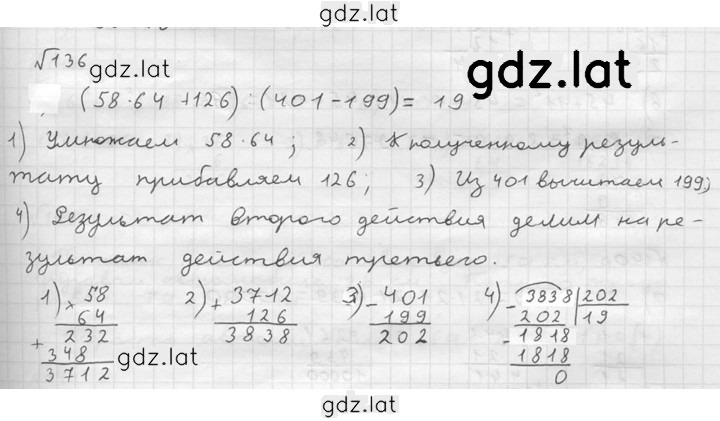 gdz.lat
√136
gdz.lat
gdz.lat
(58·64 +126) : (401-199) = 19
1) Умножаем 58·64; 2) К полученному резуль-
тату прибавляем 126; 3) Из 401 вычитаем 199;
4) Результат второго действия делим на ре-
зультат действия третьего.
1) × 58 2) + 3712 3) - 401 4) - 3838 | 202
64 126 199 202 | 19
+ 232 3838 202 - 1818
348 1818
3712 0
gdz.lat
gdz.lat